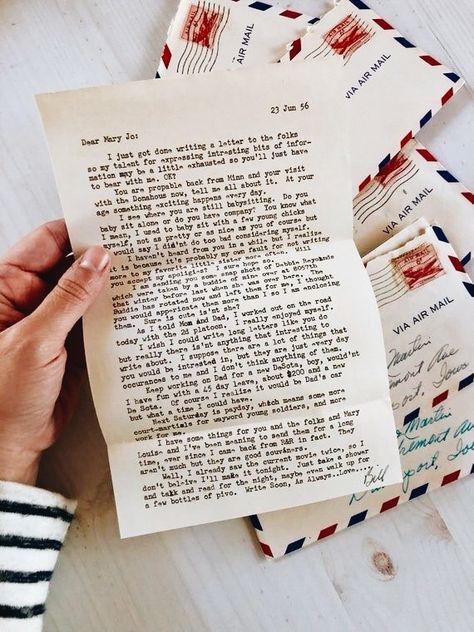 23 Jun 56
Dear Mary Jo:
I just got done writing a letter to the folks
so my talent for expressing intresting bits of infor-
mation may be a little exhausted so you'll just have
to bear with me. OK?
You are propable back from Minn and your visit
with the Donahous now, tell me all about it. At your
age something exciting happens every day.
I see where you are still babysitting. Do you
baby sit alone or do you have company? You know what
I mean, I used to baby sit with a few young chicks
myself, not as pretty or as nice as you of course but
would say I did'nt do too bad considering myself.
I haven't heard from you in a while but I realize
it is because it's probably my own fault for not writing
more to my favorite little sister more often. Will
you accept my apoligist? I sure hope so.
I am sending you some snap shots of Debbie
which were taken by a buddie of mine over at 8057th
that winter before last when she was over here. The
Buddie has rotated now and left them for me, I thought
you would appericate them more than I so I am enclosing
them. Sure is cute is'nt she?
As I told Mom and Dad, I worked out on the road
today with the 2d platoon. I really enjoyed myself.
I wish I could write long letters like you do
but really there is'nt anything that intresting to
write about. I suppose there are a lot of things that
you would be intrested in, but they are just every day
occurances to me and I don't think anything of them.
Keep working on Dad for a new DeSota, boy, would'nt
I have fun with a 45 day leave, about $200 and a new
De Sota. Of course I realise it would be Dad's car
but what a time I could have.
Next Saturday is payday, which means some more
court-martials for wayword young soldiers, and more
work for me.
I have some things for you and the folks and Mary
Louise and I've been meaning to send them for a long
time, ever since I came back from R&R in fact. They
aren't much but they are good souviners.
Well, I already saw the current movie twice, so I
don't believe I'll make it tonight. Just take a shower
and talk and read for the night, maybe even walk up for
a few bottles of pivo. Write Soon, As Always..Love..
Bill
VIA AIR MAIL
VIA AIR MAIL
VIA AIR MAIL
VIA AIR MAIL
Martin
Ave
Port, Iowa
Martin
Ave
Davenport, Iowa